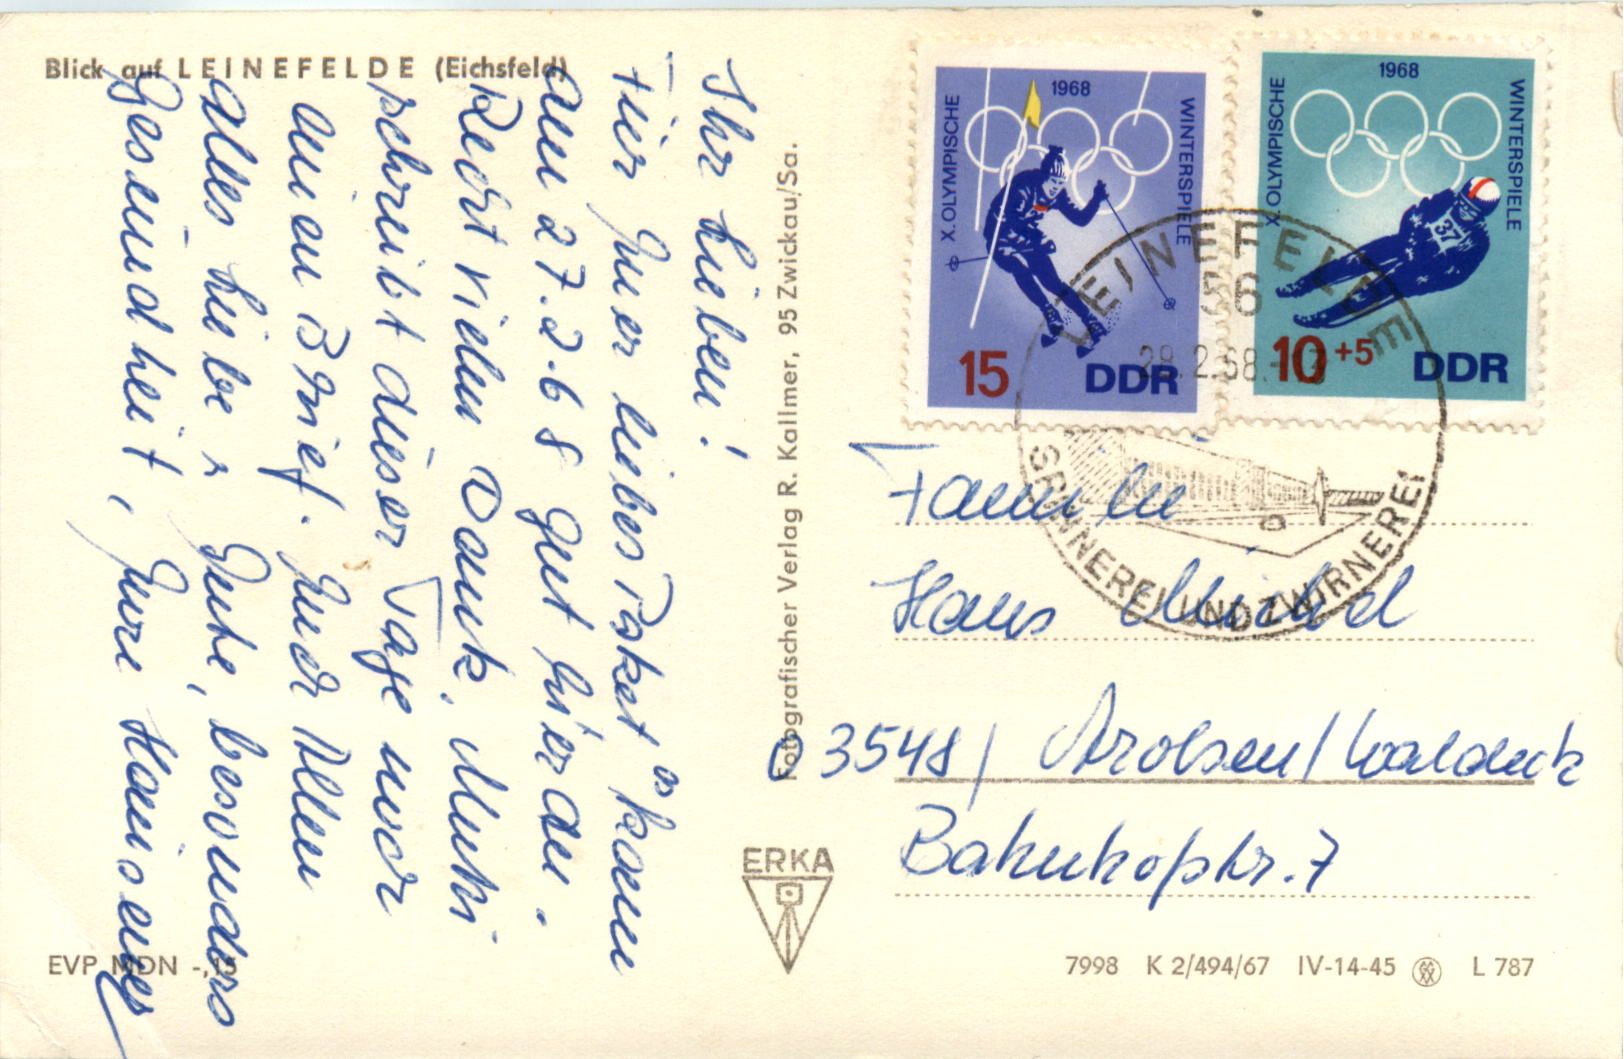 Blick auf LEINEFELDE (Eichsfeld)
Ihr Lieben!
Hier Euer liebes Paket kam
am 27.2.68 gut hier an.
Recht vielen Dank, Mutti
schreibt dieser Tage noch
einen Brief. Euch Allen
alles Liebe u Gute, besonders
Gesundheit, Eure
EVP MDN -,15
Fotografischer Verlag R. Kallmer, 95 Zwickau/Sa.
ERKA
X. OLYMPISCHE
1968
WINTERSPIELE
15
DDR
X. OLYMPISCHE
1968
WINTERSPIELE
37
10+5
DDR
LEINEFELDE
56
28.2.68
SPINNEREI UND ZWIRNEREI
Familie
Hans
3548 / Arolsen / Waldeck
Bahnhofstr. 7
7998 K 2/494/67 IV-14-45 L 787